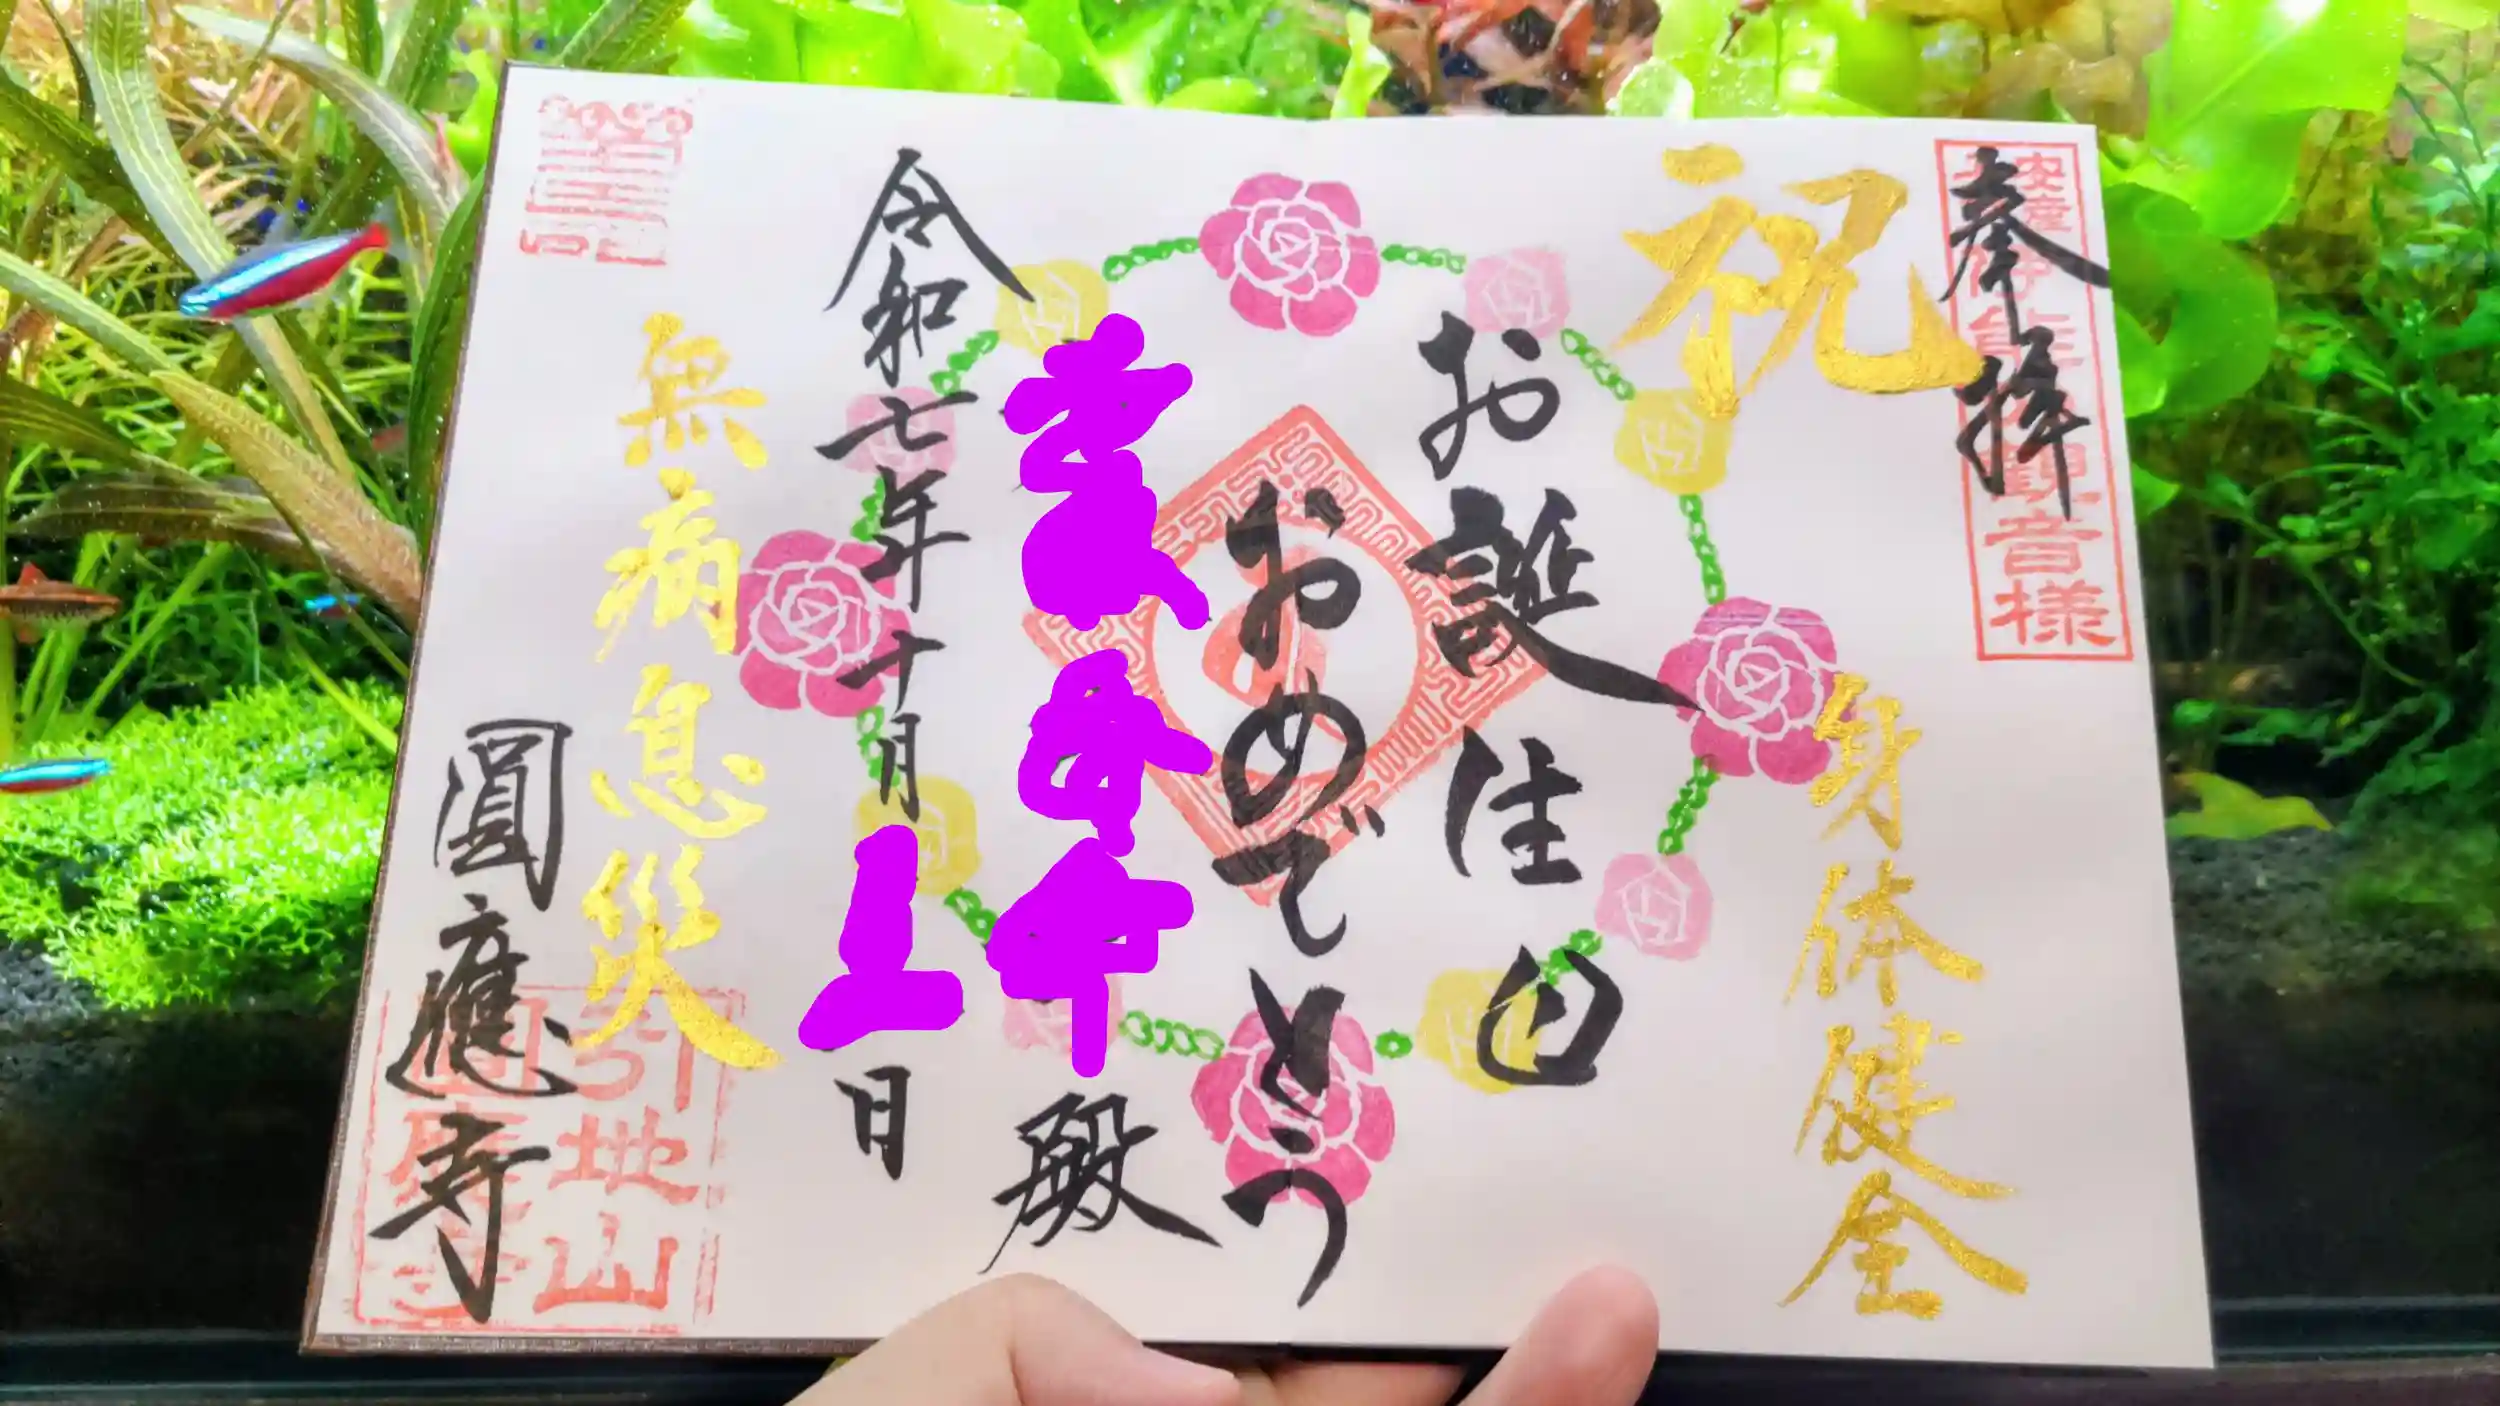 奉拝
観音様
祝
身体健全
お誕生日
おめでとう
殿
令和七年十月
日
無病息災
圓應寺
引地山